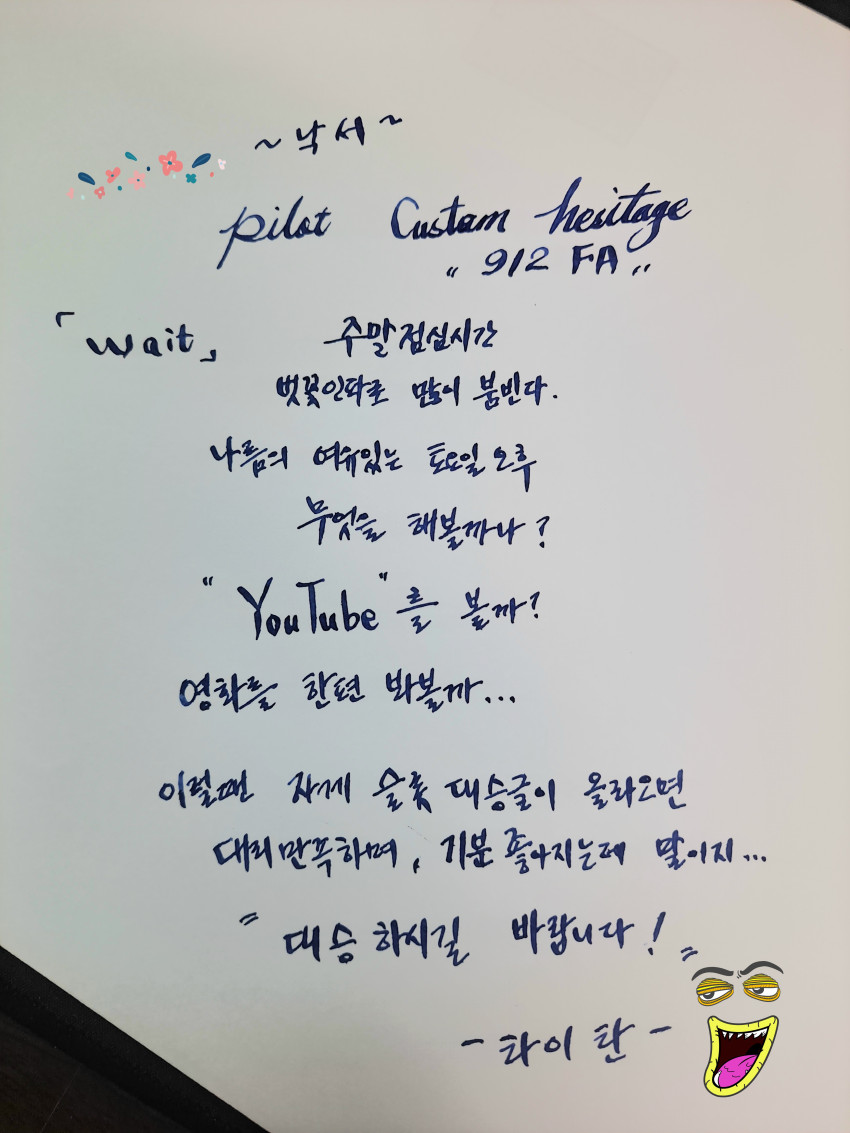 ~ 낙서 ~
pilot Custam heritage
" 912 FA "
「wait」 주말점심시간
벚꽃인파로 많이 붐빈다.
나름의 여유있는 토요일 오후
무엇을 해볼까나?
"YouTube"를 볼까?
영화를 한편 봐볼까...
이럴땐 자게 슬롯 대승글이 올라오면
대리만족하며, 기분 좋아지는데 말이지...
" 대승 하시길 바랍니다! "
- 타이탄 -